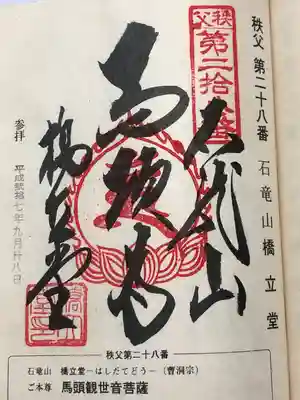 秩父 第二十八番 石竜山 橋立堂
秩父
第二拾八番
石龍山
馬頭
橋立堂
参拝 平成弐拾七年九月廿八日
秩父第二十八番
石竜山 橋立堂―はしだてどう―(曹洞宗)
ご本尊 馬頭観世音菩薩